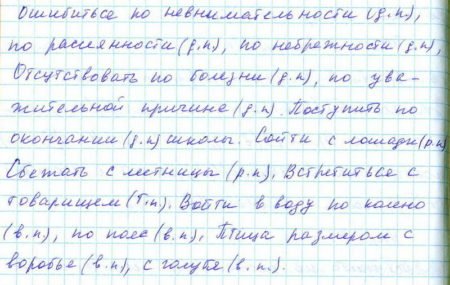 Ошибиться по невнимательности (д.п),
по рассеянности (д.п), по небрежности (д.п),
Отсутствовать по болезни (д.п), по ува-
жительной причине (д.п). Поступить по
окончании (д.п) школы. Сойти с лошади (р.п)
Сбежать с лестницы (р.п). Встретиться с
товарищем (Т.п). Войти в воду по колено
(в.п), по пояс (в.п), Птица размером с
воробья (в.п), с голубя (в.п.).